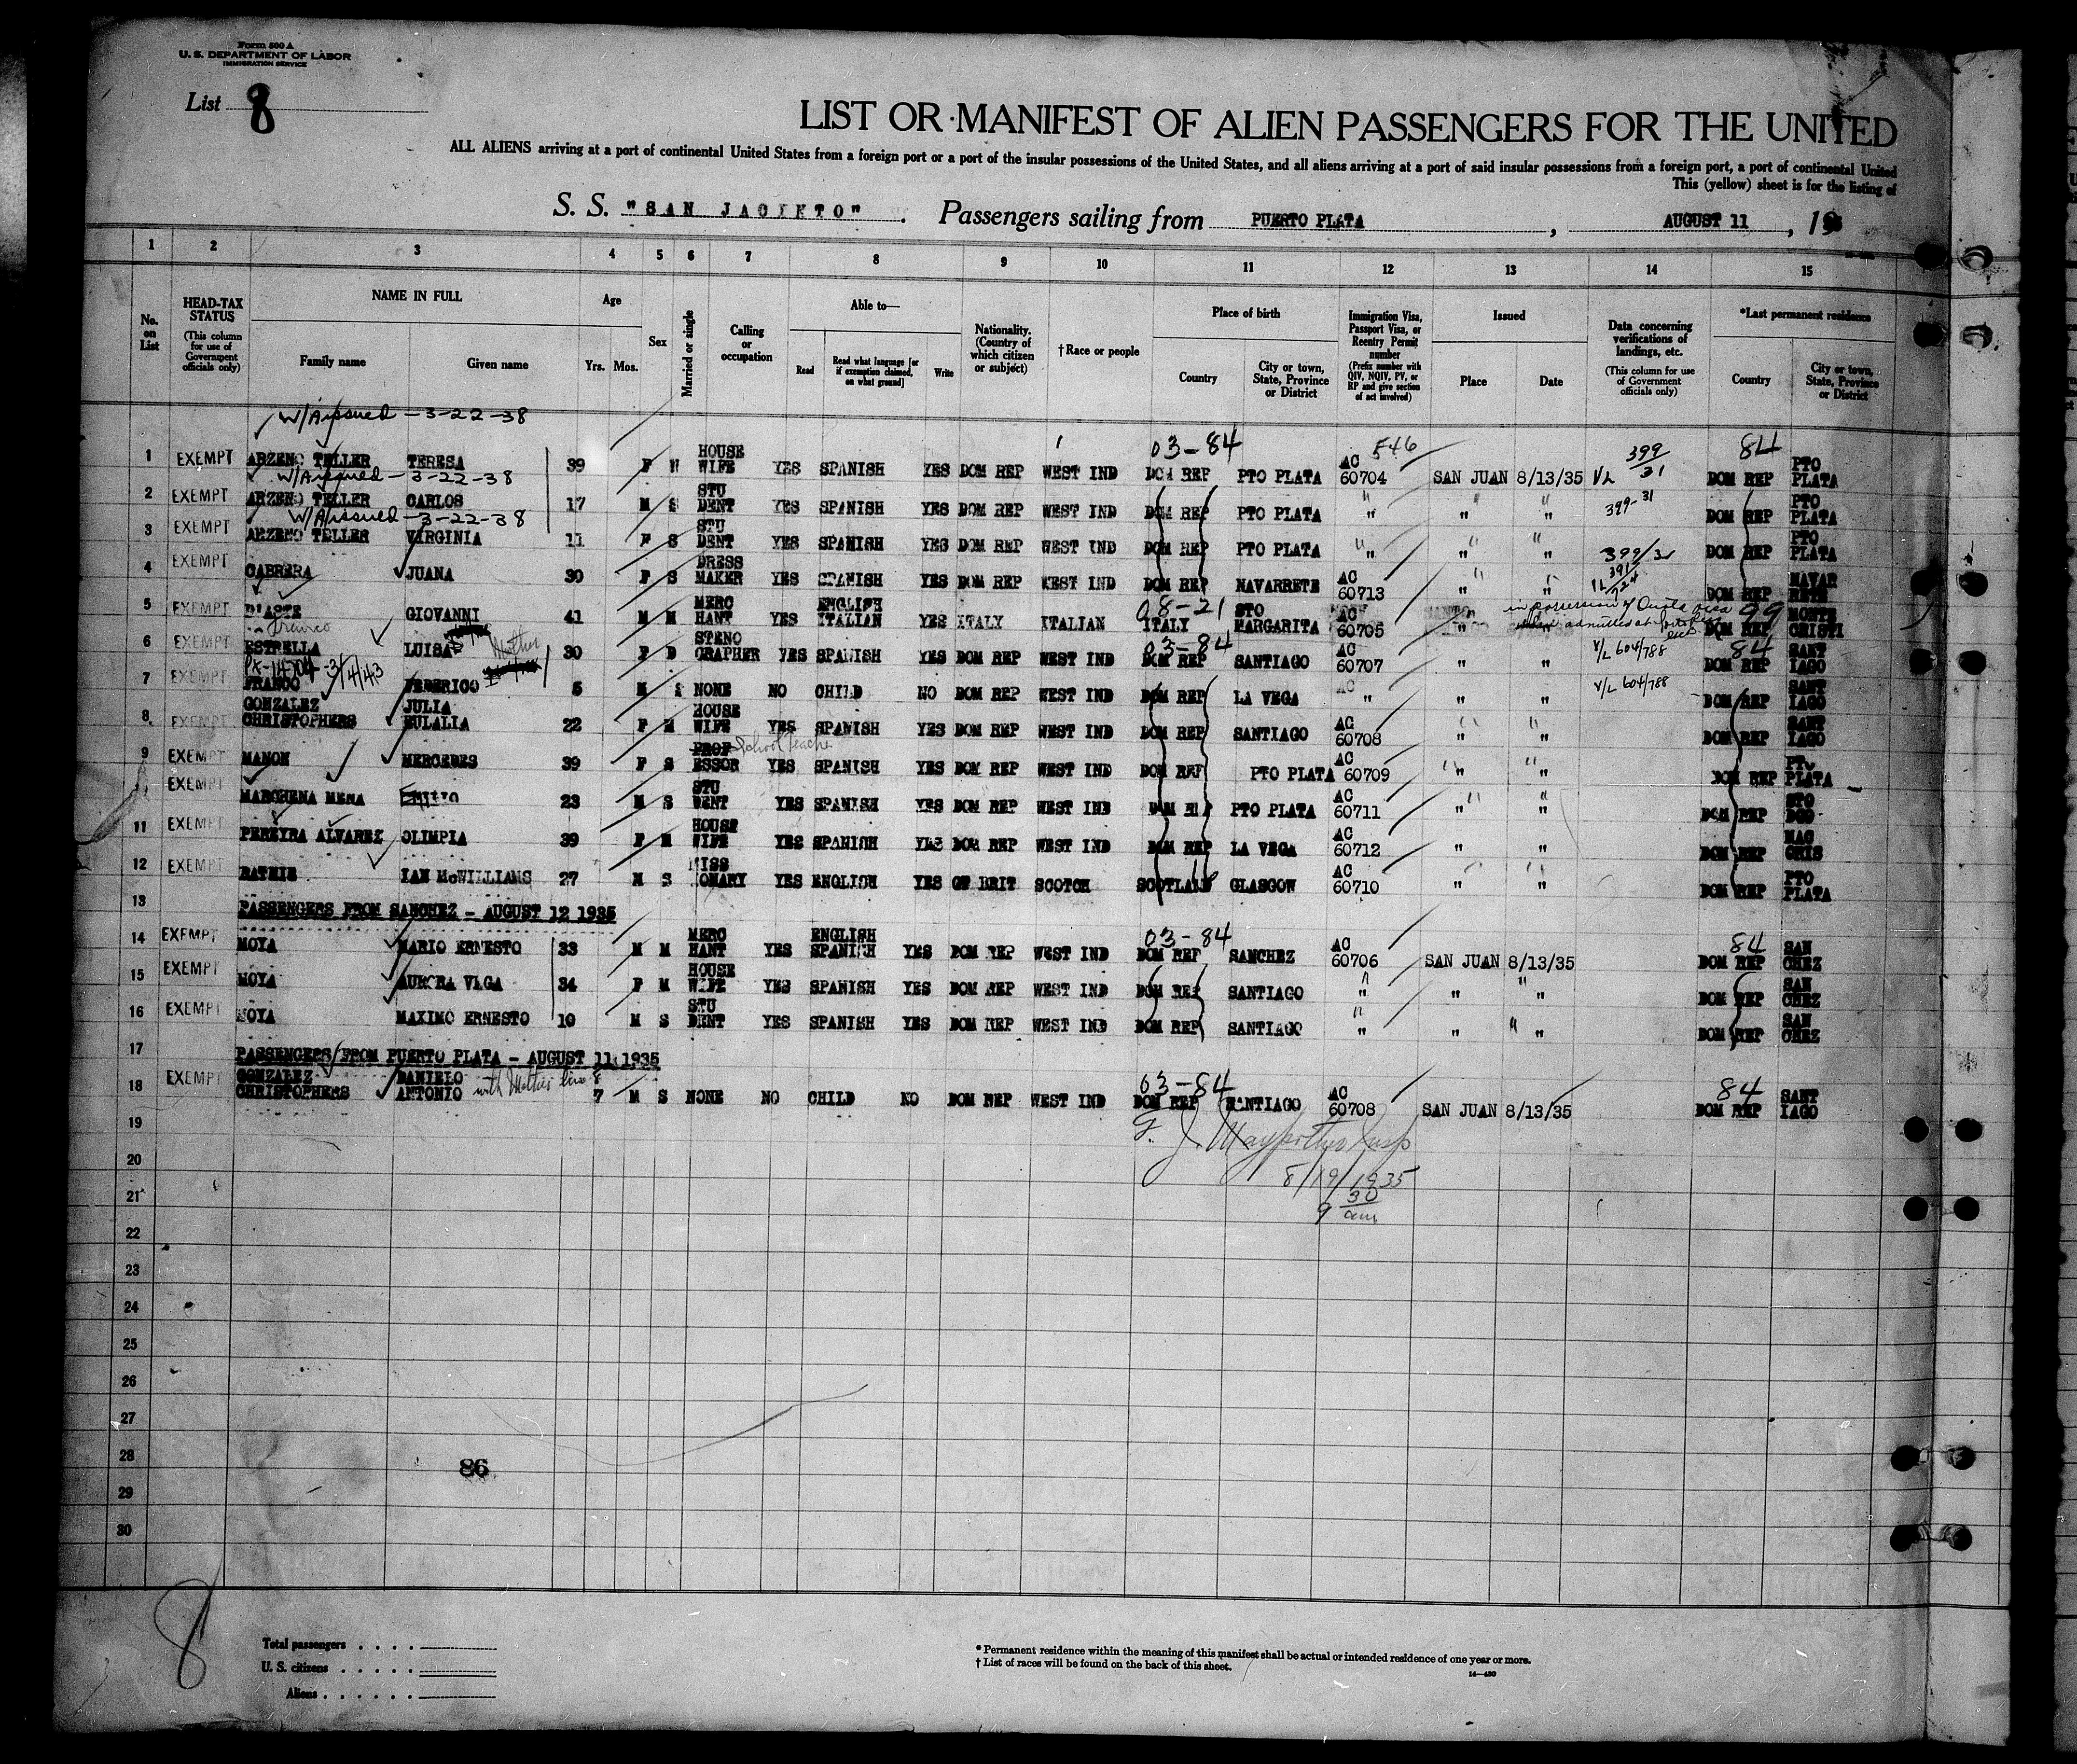 Form 500 A
U. S. DEPARTMENT OF LABOR
IMMIGRATION SERVICE
List 8
LIST OR MANIFEST OF ALIEN PASSENGERS FOR THE UNITED
ALL ALIENS arriving at a port of continental United States from a foreign port or a port of the insular possessions of the United States, and all aliens arriving at a port of said insular possessions from a foreign port, a port of continental United
This (yellow) sheet is for the listing of
S. S. "SAN JACINTO" . Passengers sailing from PUERTO PLATA , AUGUST 11 , 19
1 2 3 4 5 6 7 8 9 10 11 12 13 14 15
No. on List
HEAD-TAX STATUS (This column for use of Government officials only)
NAME IN FULL Family name Given name
Age Yrs. Mos.
Sex
Married or single
Calling or occupation
Able to— Read Read what language [or if exemption claimed, on what ground] Write
Nationality. (Country of which citizen or subject)
† Race or people
Place of birth Country City or town, State, Province or District
Immigration Visa, Passport Visa, or Reentry Permit number (Prefix number with QIV, NQIV, PV, or RP and give section of act involved)
Issued Place Date
Data concerning verifications of landings, etc. (This column for use of Government officials only)
*Last permanent residence Country City or town, State, Province or District
W/A issued - 3-22-38
03-84 546 399/31 84
1 EXEMPT ARZENO TELLER TERESA 39 F W HOUSE WIFE YES SPANISH YES DOM REP WEST IND DOM REP PTO PLATA AC 60704 SAN JUAN 8/13/35 V/L DOM REP PTO PLATA
W/A issued - 3-22-38
2 EXEMPT ARZENO TELLER CARLOS 17 M S STU DENT YES SPANISH YES DOM REP WEST IND DOM REP PTO PLATA " " " 399-31 DOM REP PTO PLATA
W/A issued - 3-22-38
3 EXEMPT ARZENO TELLER VIRGINIA 11 F S STU DENT YES SPANISH YES DOM REP WEST IND DOM REP PTO PLATA " " " 399/31 DOM REP PTO PLATA
4 EXEMPT CABRERA JUANA 30 F S DRESS MAKER YES SPANISH YES DOM REP WEST IND DOM REP NAVARRETE AC 60713 " " DOM REP NAVAR RETE
08-21 in possession of Quota visa when admitted at 99
5 EXEMPT D'ASTE GIOVANNI 41 M M MERC HANT YES ENGLISH ITALIAN YES ITALY ITALIAN ITALY STO MARGARITA AC 60705 " " DOM REP MONTE CHRISTI
Franco Mother 03-84 V/L 604/788 84
6 EXEMPT ESTRELLA LUISA 30 F D STENO GRAPHER YES SPANISH YES DOM REP WEST IND DOM REP SANTIAGO AC 60707 " " DOM REP SANT IAGO
7 EXEMPT FRANCO FEDERICO 5 M S NONE NO CHILD NO DOM REP WEST IND DOM REP LA VEGA " " " V/L 604/788 DOM REP SANT IAGO
8 EXEMPT GONZALEZ CHRISTOPHERS JULIA EULALIA 22 F M HOUSE WIFE YES SPANISH YES DOM REP WEST IND DOM REP SANTIAGO AC 60708 " " DOM REP SANT IAGO
9 EXEMPT MAMON MERCEDES 39 F S PROF ESSOR School Teacher YES SPANISH YES DOM REP WEST IND DOM REP PTO PLATA AC 60709 " " DOM REP PTO PLATA
EXEMPT MARCHENA MERA EMILIO 23 M S STU DENT YES SPANISH YES DOM REP WEST IND DOM REP PTO PLATA AC 60711 " " DOM REP STO DGO
11 EXEMPT PEREYRA ALVAREZ OLIMPIA 39 F M HOUSE WIFE YES SPANISH YES DOM REP WEST IND DOM REP LA VEGA AC 60712 " " DOM REP MAC ORIS
12 EXEMPT RATHIE IAN McWILLIAMS 27 M S MISS IONARY YES ENGLISH YES GT BRIT SCOTCH SCOTLAND GLASGOW AC 60710 " " DOM REP PTO PLATA
13 PASSENGERS FROM SANCHEZ - AUGUST 12 1935
03-84 84
14 EXEMPT MOYA MARIO ERNESTO 33 M M MERC HANT YES ENGLISH SPANISH YES DOM REP WEST IND DOM REP SANCHEZ AC 60706 SAN JUAN 8/13/35 DOM REP SAN CHEZ
15 EXEMPT MOYA AURORA VEGA 34 F M HOUSE WIFE YES SPANISH YES DOM REP WEST IND DOM REP SANTIAGO " " " DOM REP SAN CHEZ
16 EXEMPT MOYA MAXIMO ERNESTO 10 M S STU DENT YES SPANISH YES DOM REP WEST IND DOM REP SANTIAGO " " " DOM REP SAN CHEZ
17 PASSENGERS FROM PUERTO PLATA - AUGUST 11 1935
03-84 84
18 EXEMPT GONZALEZ CHRISTOPHERS DANIELO ANTONIO with Mother line 8 7 M S NONE NO CHILD NO DOM REP WEST IND DOM REP SANTIAGO AC 60708 SAN JUAN 8/13/35 DOM REP SANT IAGO
19
20
8/19/1935
21
9 30 am
22
23
24
25
26
27
28
86
29
30
8
Total passengers . . . .
U. S. citizens . . . . .
Aliens . . . . . .
* Permanent residence within the meaning of this manifest shall be actual or intended residence of one year or more.
† List of races will be found on the back of this sheet.
14—430